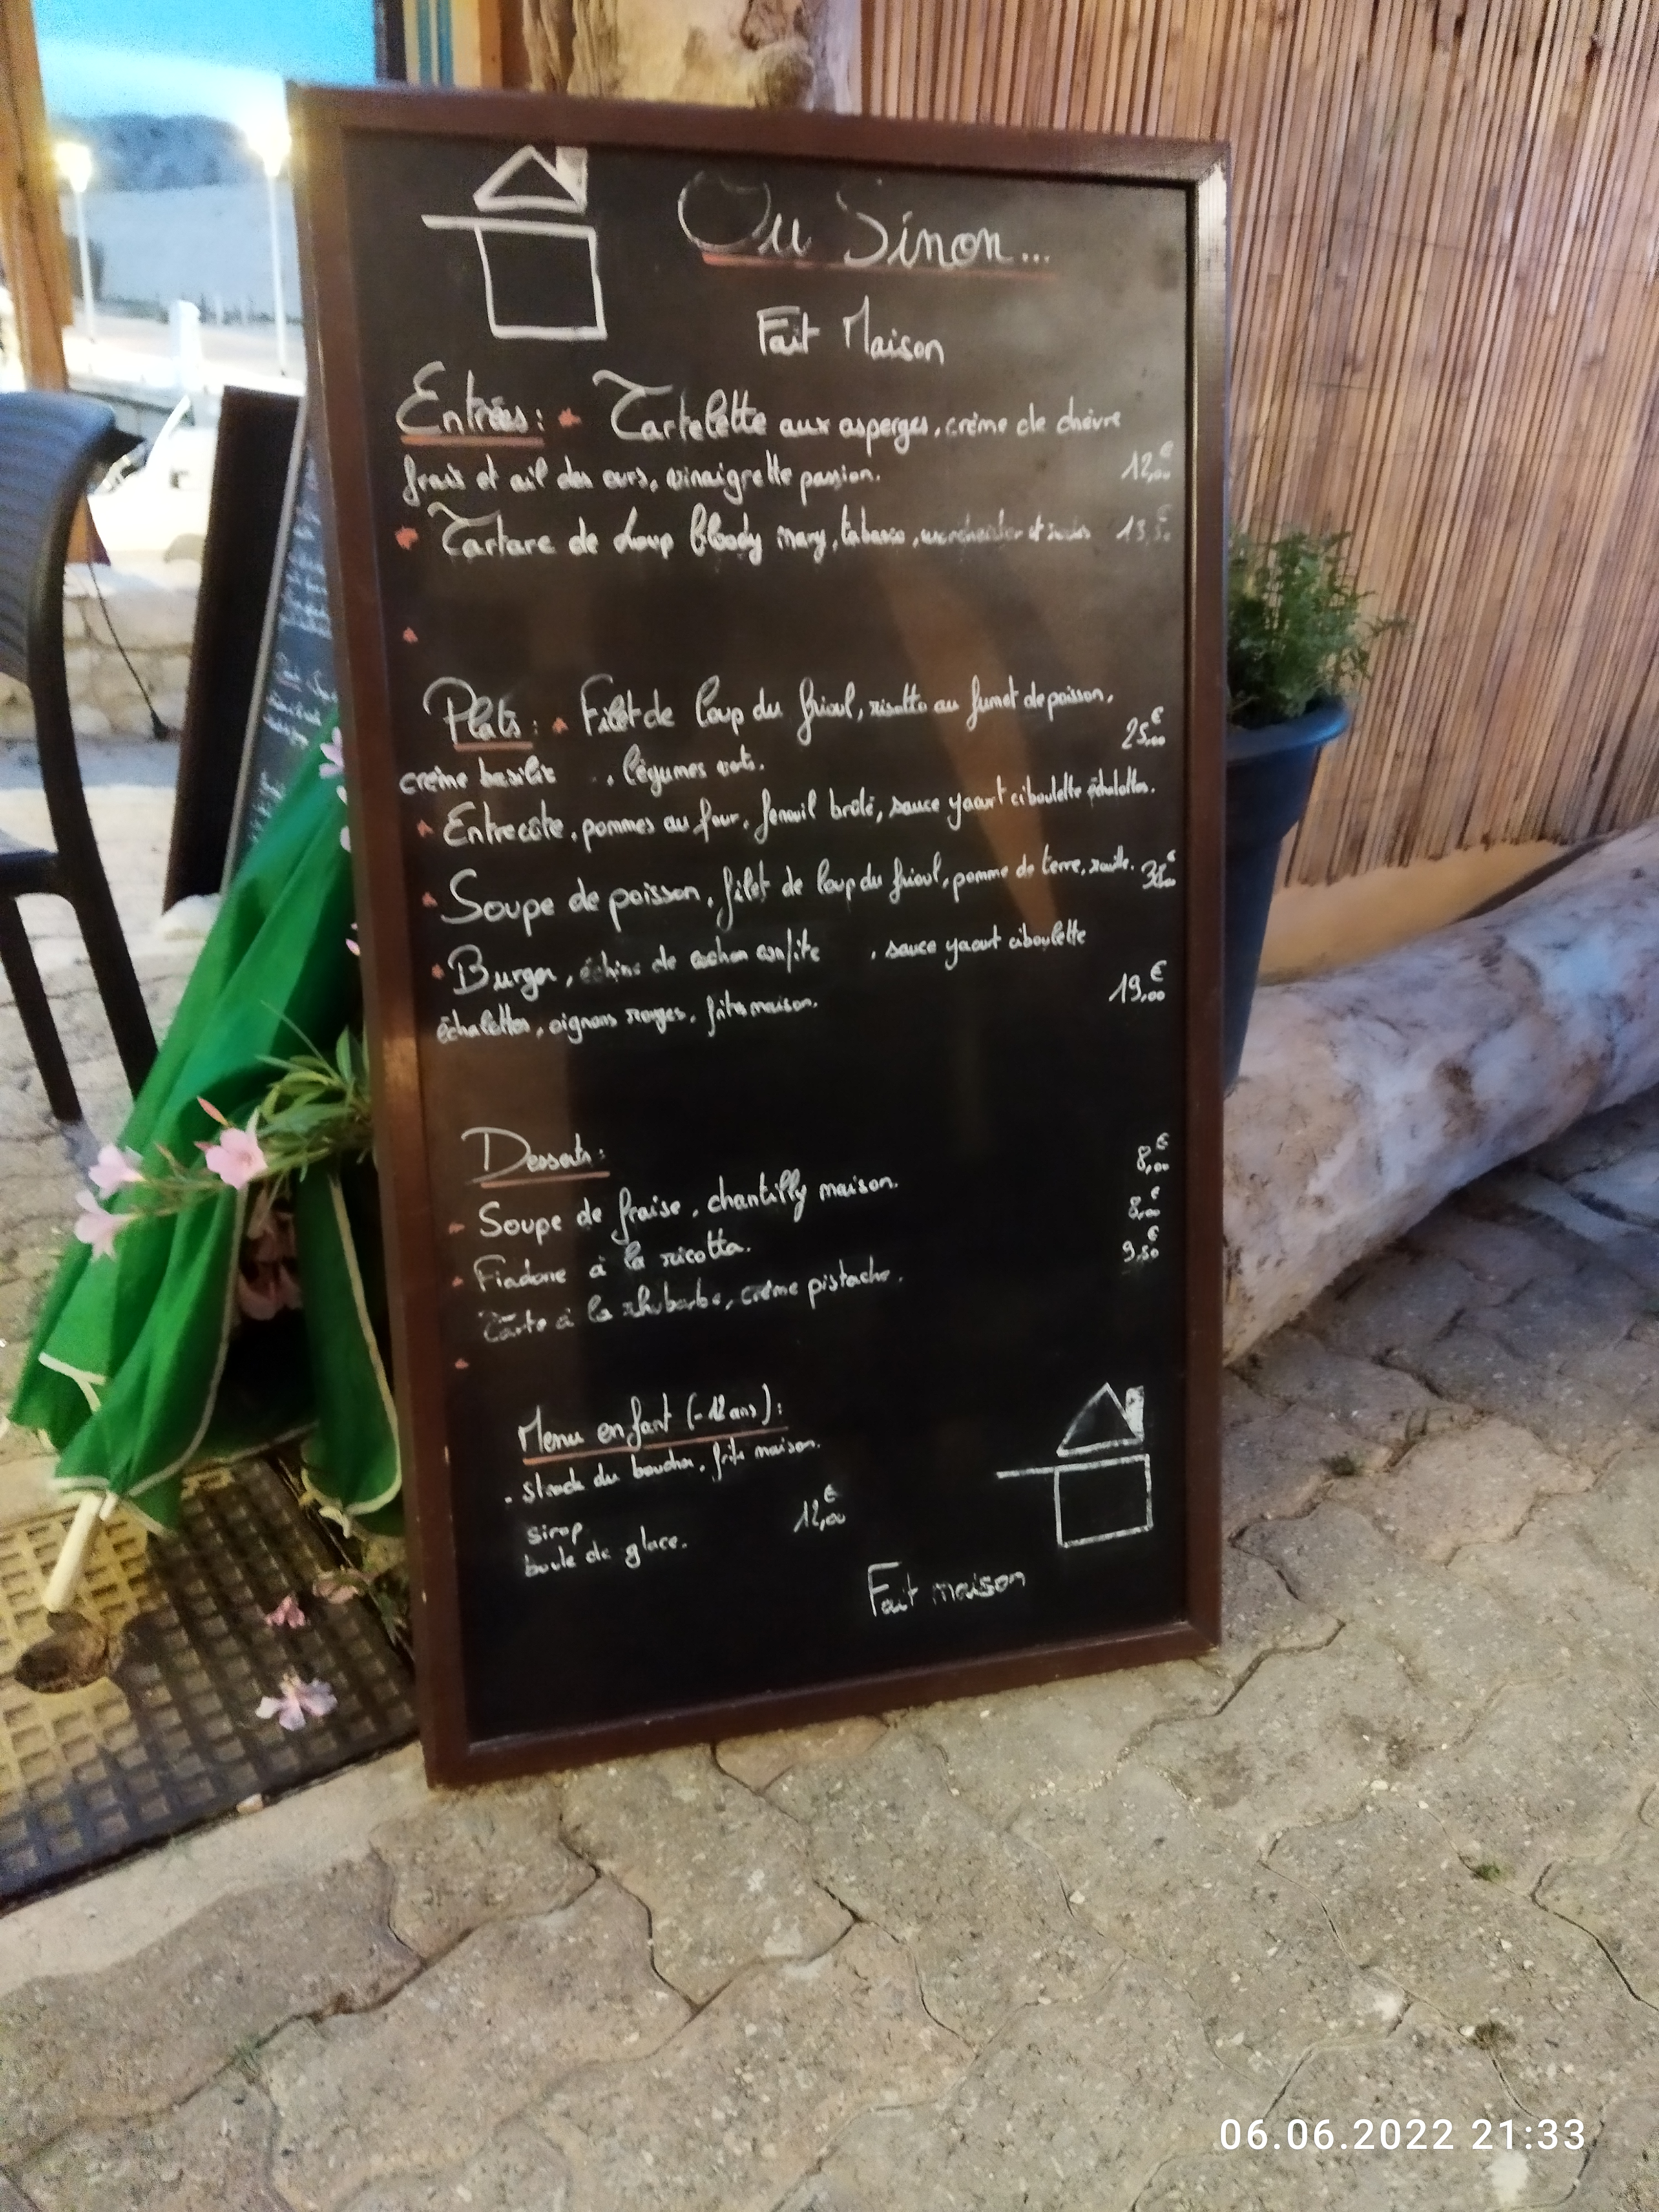 Ou Sinon...
Fait Maison
Entrées: Tartelette aux asperges, crème de chèvre
frais et ail des ours, vinaigrette passion. 12,00€
Tartare de Loup bloody mary, tabasco, worchester et 13,50€
Plats: Filet de loup du frioul, risotto au fumet de poisson,
crème basilic , légumes verts. 25,00€
Entrecôte, pommes au four, fenouil brûlé, sauce yaourt ciboulette échalottes.
Soupe de poisson, filet de loup du frioul, pomme de terre, rouille.
Burger, échine de cochon confite , sauce yaourt ciboulette
échalottes, oignons rouges, frites maison. 19,00€
Desserts:
Soupe de fraise, chantilly maison. 8,00€
Fiadone à la ricotta. 8,00€
Tarte à la rhubarbe, crème pistache. 9,50€
Menu enfant (-12 ans):
. steack du boucher, frite maison.
sirop 12,00€
boule de glace.
Fait maison
06.06.2022 21:33